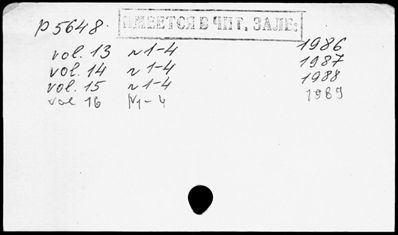 P5648.
ИМЕЕТСЯ В ЧИТ. ЗАЛЕ:
vol. 13 N 1-4 1986
vol. 14 N 1-4 1987
vol. 15 N 1-4 1988
vol 16 N1-4 1989